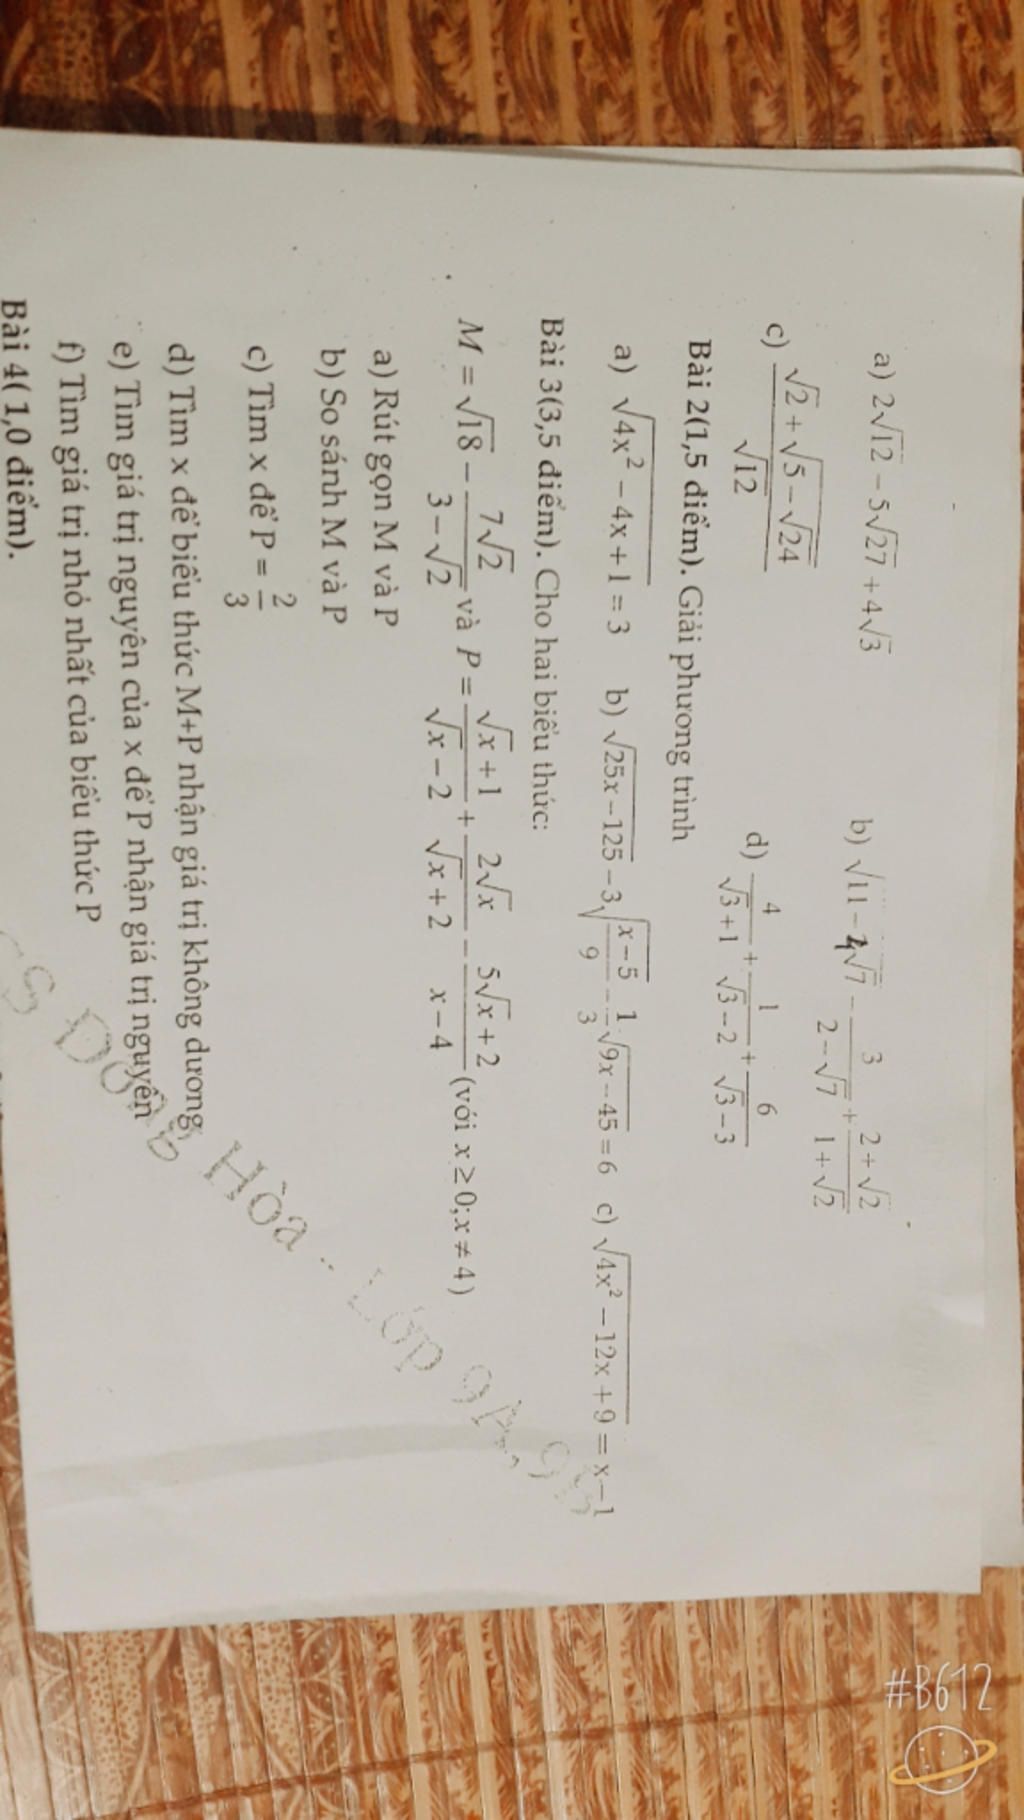 a) 2√12 − 5√27 + 4√3 b) √(11 − 4√7) − 3/(2 − √7) + (2 + √2)/(1 + √2)
c) (√2 + √(5 − √24))/√12 d) 4/(√3 + 1) + 1/(√3 − 2) + 6/(√3 − 3)
Bài 2(1,5 điểm). Giải phương trình
a) √(4x² − 4x + 1) = 3 b) √(25x − 125) − 3√((x − 5)/9) − 1/3 √(9x − 45) = 6 c) √(4x² − 12x + 9) = x − 1
Bài 3(3,5 điểm). Cho hai biểu thức:
M = √18 − 7√2/(3 − √2) và P = (√x + 1)/(√x − 2) + 2√x/(√x + 2) − (5√x + 2)/(x − 4) (với x ≥ 0; x ≠ 4)
a) Rút gọn M và P
b) So sánh M và P
c) Tìm x để P = 2/3
d) Tìm x để biểu thức M+P nhận giá trị không dương
e) Tìm giá trị nguyên của x để P nhận giá trị nguyên
f) Tìm giá trị nhỏ nhất của biểu thức P
Bài 4( 1,0 điểm).
Hòa - Lớp 9A,
#B612